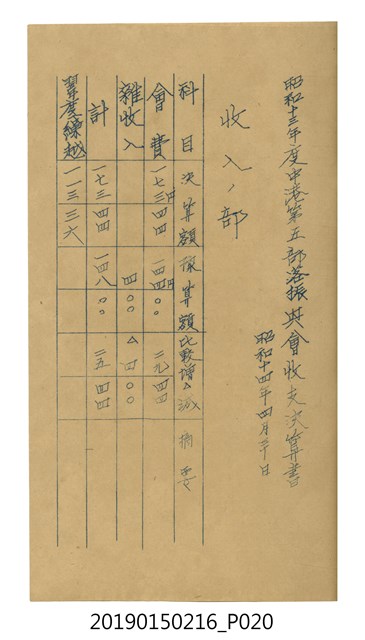 昭和十三年度中港第五部落振興會收支決算書
昭和十四年四月三十日
收入ノ部
科目 決算額 豫算額 比較增△減 摘要
會費 一七三円四四 一四四円〇〇 二九四四
雜收入 四〇〇 △四〇〇
計 一七三四四 一四八〇〇 二五四四
翌度繰越 一一三三六
20190150216_P020